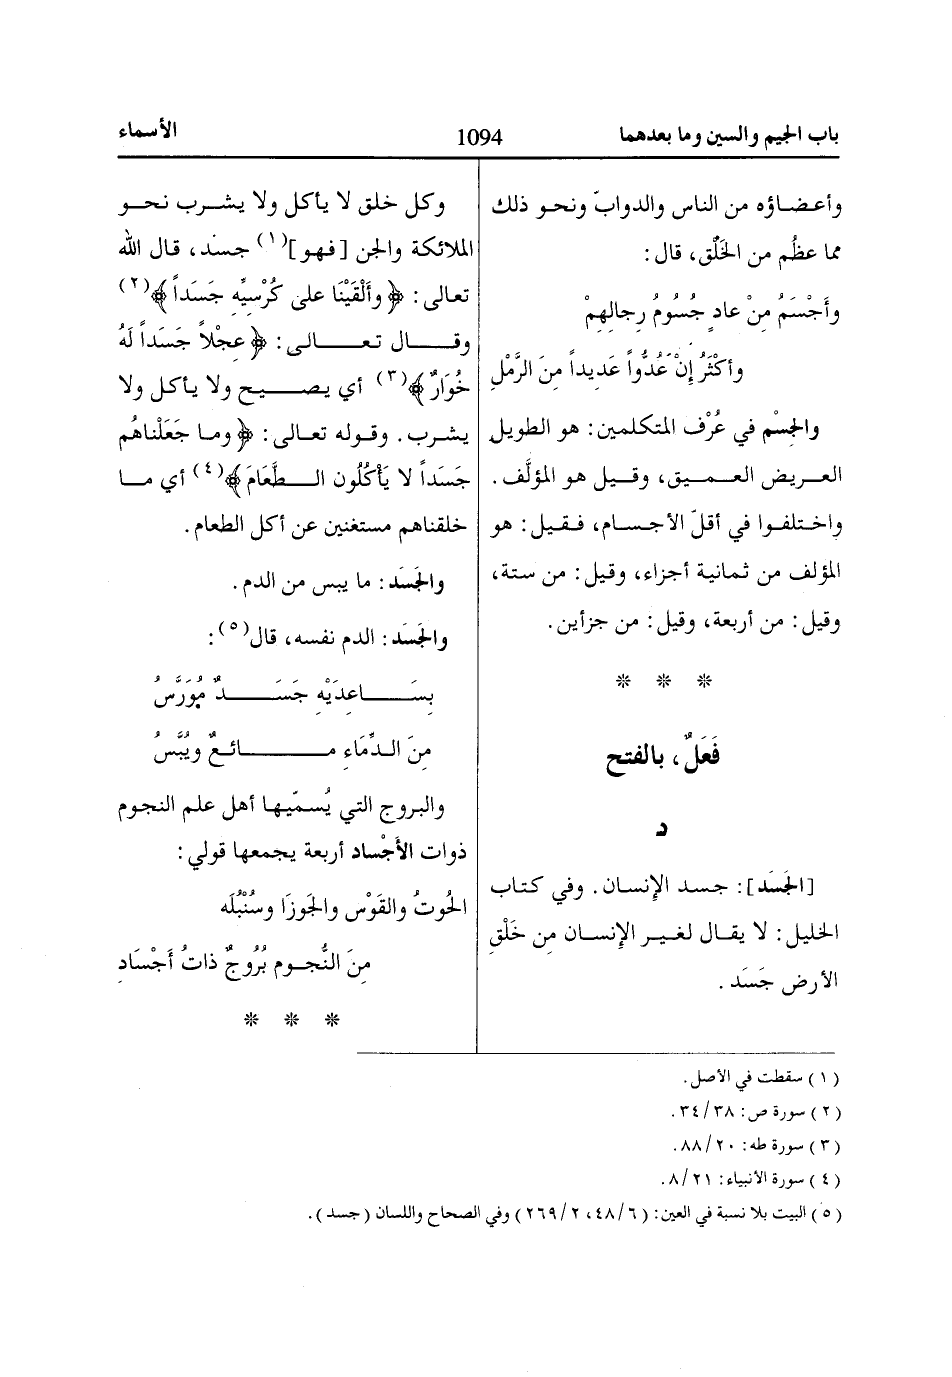 باب الجيم والسين وما بعدهما 1094 الأسماء
وأعضاؤه من الناس والدوابّ ونحو ذلك
مما عظُم من الخَلْق، قال:
وأَجْسَمُ مِنْ عادٍ جُسُومُ رِجالِهِمْ
وأَكْثَرُ إنْ عُدُّواً عَدِيداً مِنَ الرَّمْلِ
والجِسْم في عُرْف المتكلمين: هو الطويل
العريض العميق، وقيل هو المؤلَّف.
واختلفوا في أقلّ الأجسام، فقيل: هو
المؤلف من ثمانية أجزاء، وقيل: من ستة،
وقيل: من أربعة، وقيل: من جزأين.
* * *
فَعَلٌ، بالفتح
د
[الجَسَد]: جسد الإنسان. وفي كتاب
الخليل: لا يقال لغير الإنسان من خَلْقِ
الأرض جَسَد.
وكل خلق لا يأكل ولا يشرب نحو
الملائكة والجن [فهو](١) جسد، قال الله
تعالى: ﴿وأَلْقَيْنَا على كُرْسيِّه جَسَداً﴾(٢)
وقال تعالى: ﴿عجْلاً جَسَداً لَهُ
خُوَارٌ﴾(٣) أي يصيح ولا يأكل ولا
يشرب. وقوله تعالى: ﴿وما جَعَلْناهُم
جَسَداً لا يَأكُلُون الطَّعَامَ﴾(٤) أي ما
خلقناهم مستغنين عن أكل الطعام.
والجَسَد: ما يبس من الدم.
والجَسَد: الدم نفسه، قال(٥):
بسَاعِدَيْهِ جَسَدٌ مُوَرَّسُ
مِنَ الدِّمَاءِ مَائعٌ ويُبَّسُ
والبروج التي يُسمّيها أهل علم النجوم
ذوات الأَجْساد أربعة يجمعها قولي:
الحُوتُ والقَوْس والجَوزَا وسُنْبُلَه
مِنَ النُّجومِ بُرُوجٌ ذاتُ أَجْسَادِ
* * *
(١) سقطت في الأصل.
(٢) سورة ص: ٣٨/٣٤.
(٣) سورة طه: ٢٠/٨٨.
(٤) سورة الأنبياء: ٢١/٨.
(٥) البيت بلا نسبة في العين: (٤٨/٦، ٢٦٩/٢) وفي الصحاح واللسان (جسد).